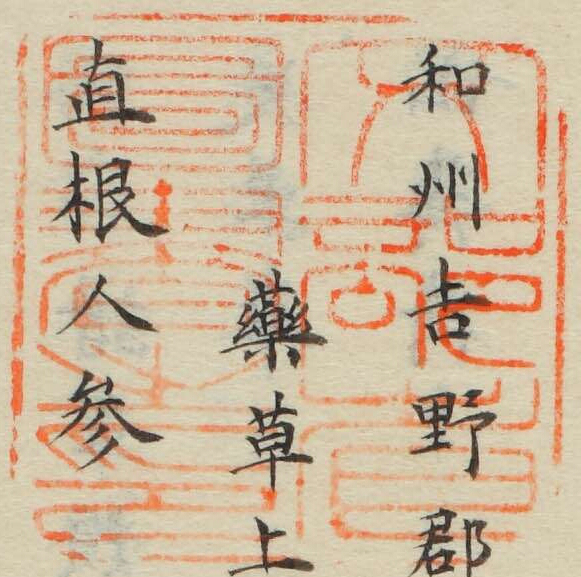 和州吉野郡
藥草上
直根人参